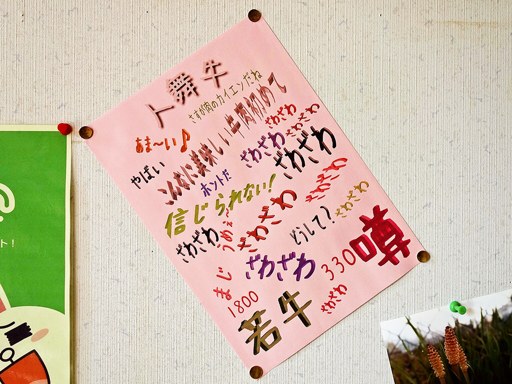 ト舞牛
さすが肉のカイエンだね
あま〜い♪
こんなに美味しい牛肉初めて
ざわざわ
ざわざわ
やばい
ホントだ
ざわざわ
ざわざわ
信じられない!
ざわざわ
ざわざわ
うめぇ〜
ざわざわ
どうして?
ざわざわ
まじ
ざわざわ
330
噂
1800
若牛
ざわざわ
ト!